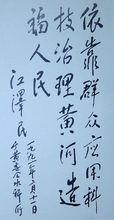 依靠群众应用科
技治理黄河造
福人民
江泽民
一九九一年二月十一日